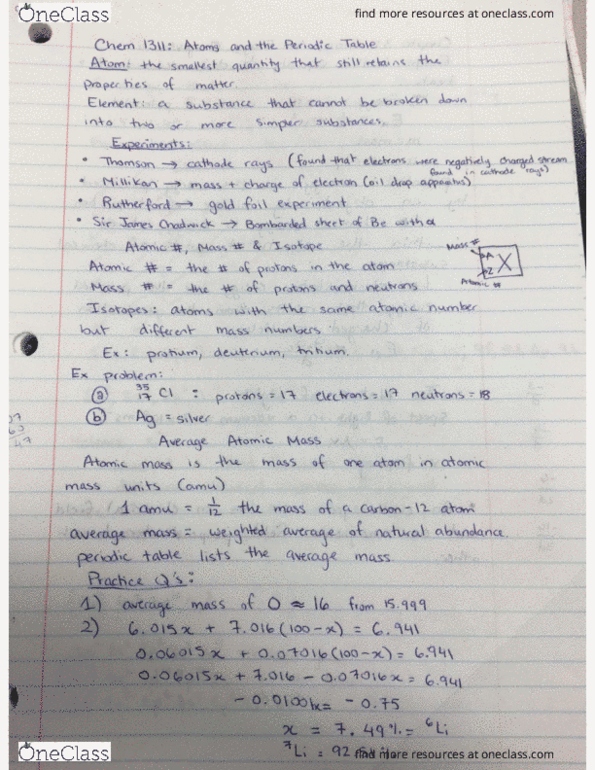 OneClass
find more resources at oneclass.com
Chem 1311: Atoms and the Periodic Table
Atom: the smallest quantity that still retains the
properties of matter.
Element: a substance that cannot be broken down
into two or more simpler substances.
Experiments:
• Thomson → cathode rays (found that electrons were negatively charged stream
found in cathode rays)
• Millikan → mass + charge of electron (oil drop apparatus)
• Rutherford → gold foil experiment
• Sir James Chadwick → Bombarded sheet of Be with α
Atomic #, Mass # & Isotope
Mass #
A X
Z
Atomic #
Atomic # = the # of protons in the atom
Mass # = the # of protons and neutrons
Isotopes: atoms with the same atomic number
but different mass numbers.
Ex: protium, deuterium, tritium.
Ex problem:
(a) 35 17 Cl : protons = 17 electrons = 17 neutrons = 18
(b) Ag = silver
Average Atomic Mass
Atomic mass is the mass of one atom in atomic
mass units (amu)
1 amu = 1/12 the mass of a carbon-12 atom
average mass = weighted average of natural abundance.
periodic table lists the average mass.
Practice Q's:
1) average mass of O ≈ 16 from 15.999
2) 6.015x + 7.016(100-x) = 6.941
0.06015x + 0.07016(100-x) = 6.941
0.06015x + 7.016 - 0.07016x = 6.941
- 0.01001x = - 0.75
x = 7.49% = ⁶Li
⁷Li = 92
OneClass
find more resources at oneclass.com